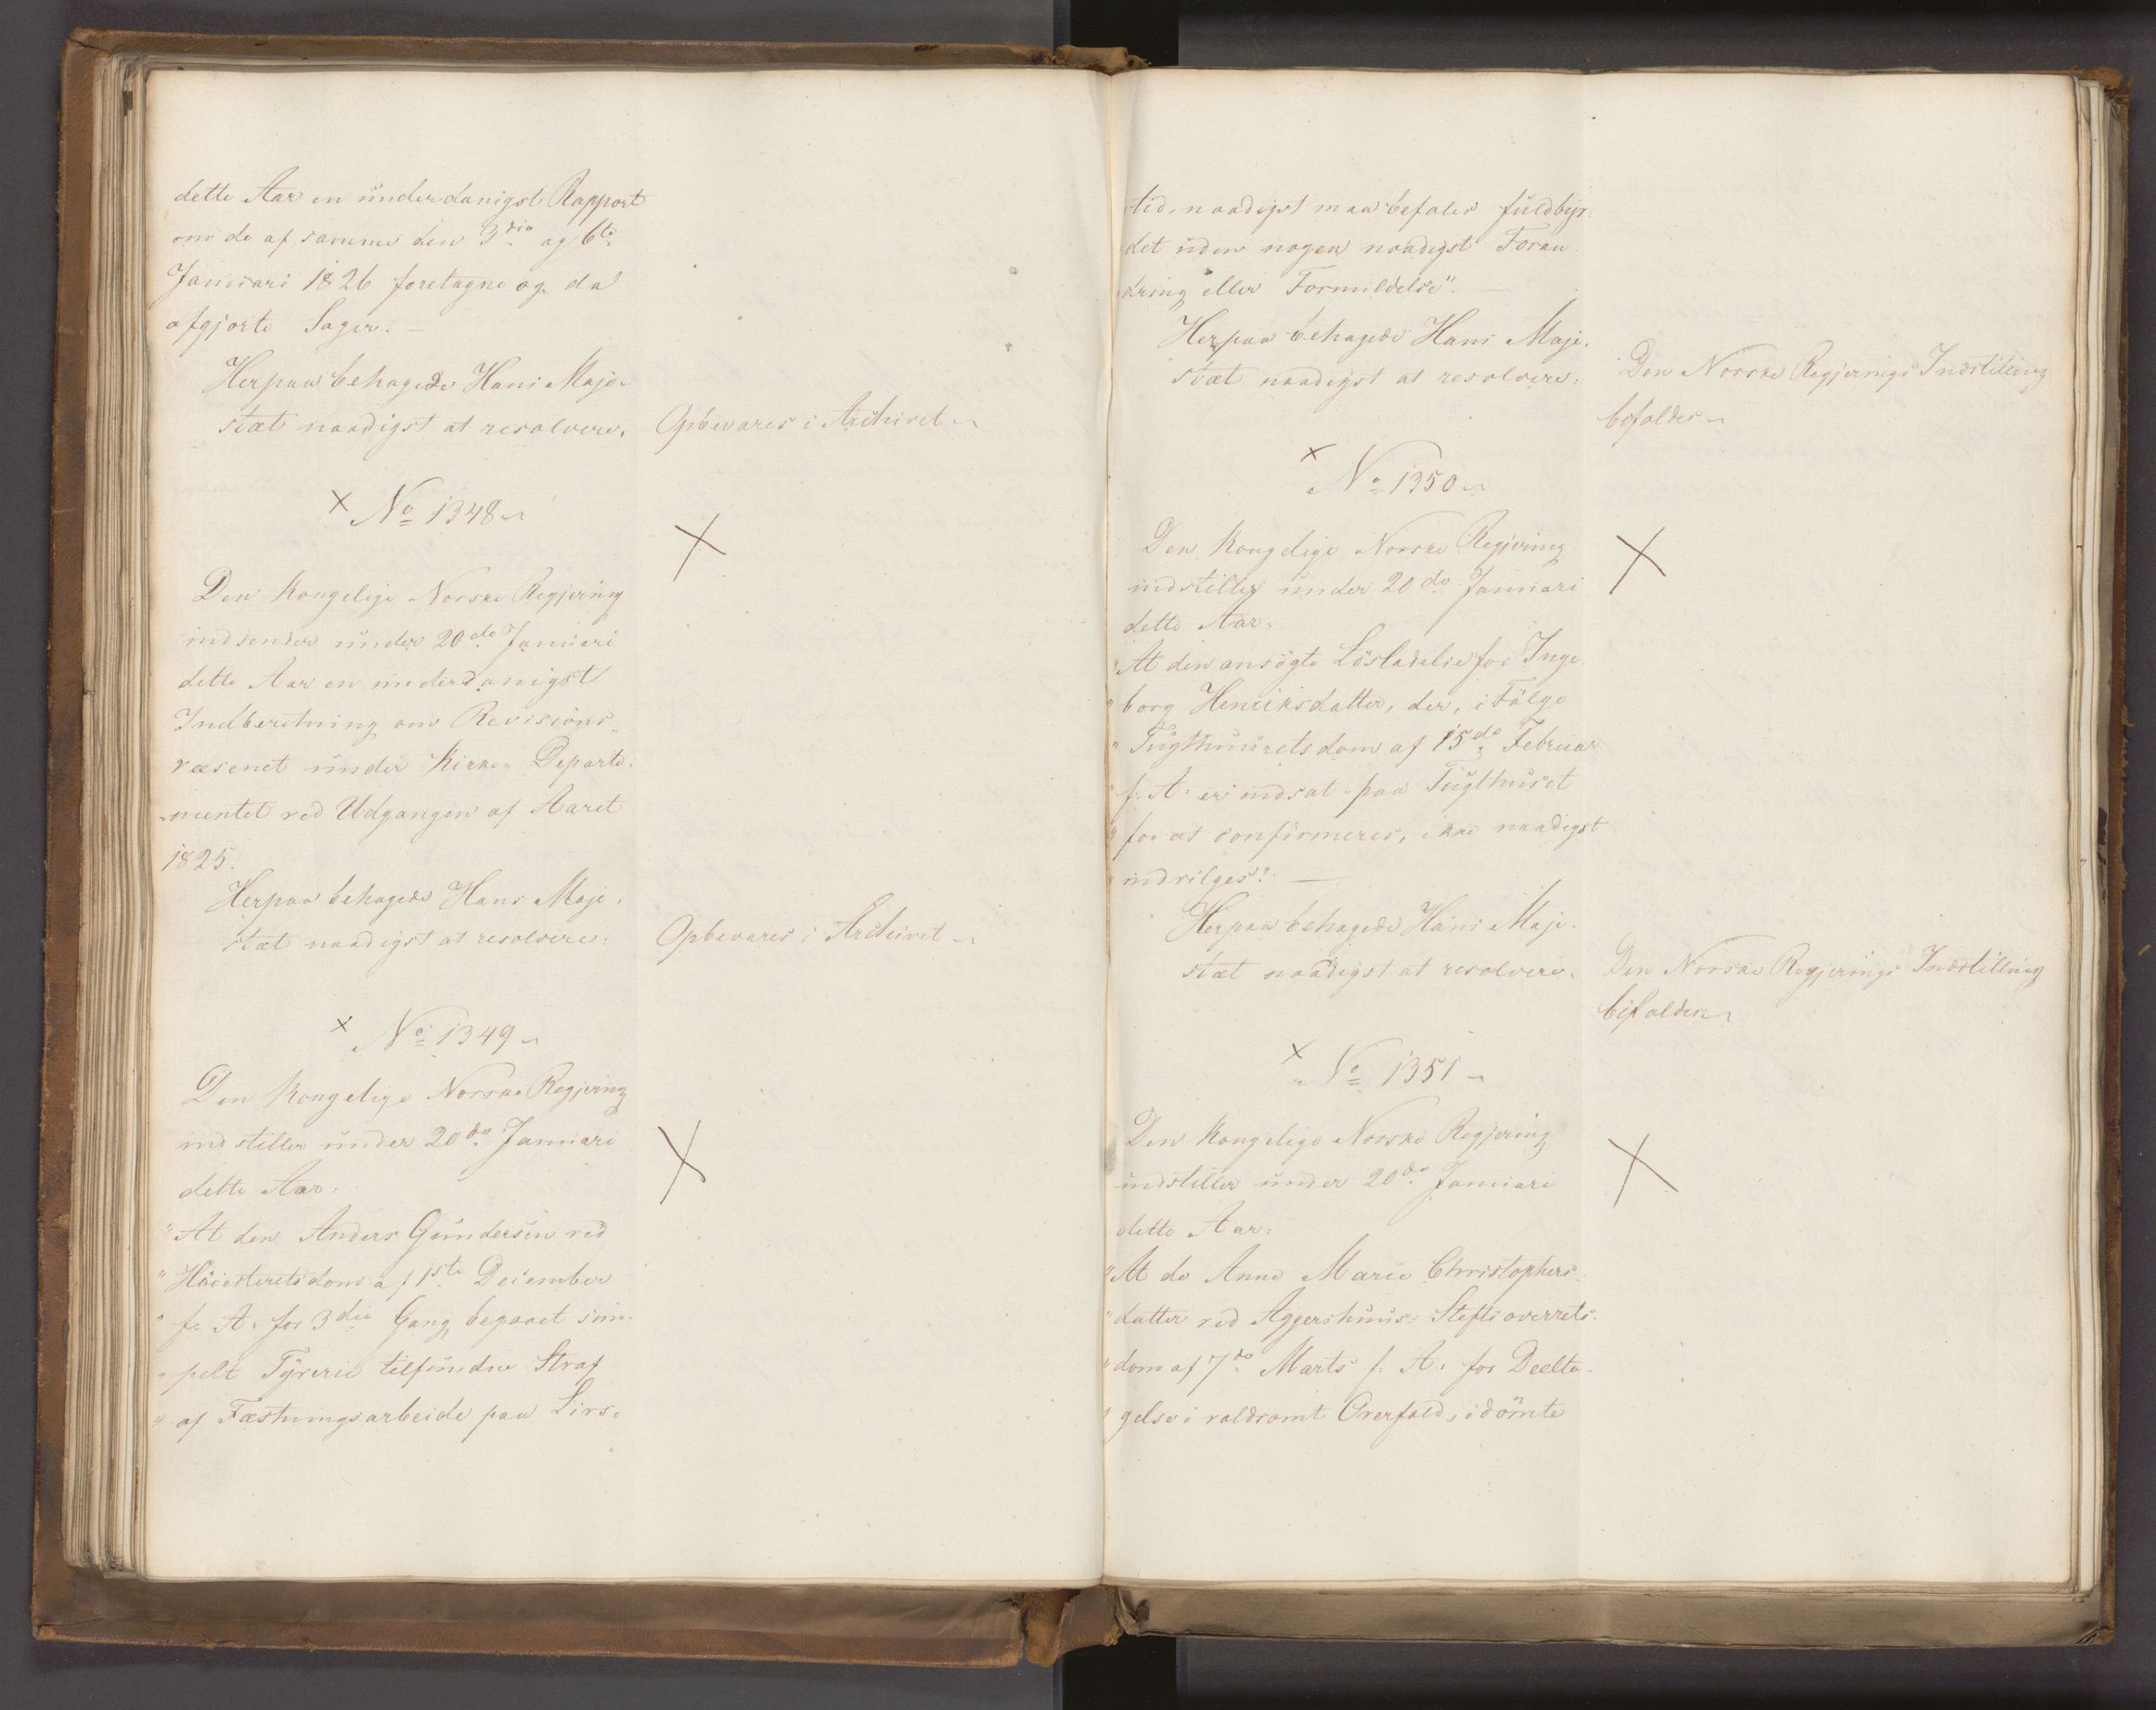 dette Aar en underdanigst Rapport
om de af samme den 3die og 6te
Januari 1826 foretagne og da
afgjorte Sager. —
Herpaa behagede Hans Maje-
stæt naadigst at resolvere,
Opbevares i Archivet
× No 1348
Den Kongelige Norske Regjering
indsender under 20de Januari
dette Aar en underdanigst
Indberetning om Revisions-
væsenet under Kirke-Departe-
mentet ved Udgangen af Aaret
1825.
Herpaa behagede Hans Maje-
stæt naadigst at resolvere:
Opbevares i Archivet
× No 1349
Den Kongelige Norske Regjering
indstiller under 20de Januari
dette Aar:
"At den Anders Gundersen ved
"Höiesteretsdom af 1ste December
"f. A. for 3die Gang begaaet sim-
"pelt Tyverie tilfundne Straf
"af Fæstningsarbeide paa Livs-
tid, naadigst maa befales fuldbyr-
det uden nogen naadigst Foran-
dring eller Formildelse". —
Herpaa behagede Hans Maje-
stæt naadigst at resolvere:
Den Norske Regjerings Indstilling
bifaldes
× No 1350
Den Kongelige Norske Regjering
indstiller under 20de Januari
dette Aar:
"At den ansögte Lösladelse for Inge-
"borg Henriksdatter, der, i Fölge
"Tugthuusretsdom af 15de Februar
"f. A. er indsat paa Tugthuset
"for at confirmeres, ikke naadigst
"indvilges". —
Herpaa behagede Hans Maje-
stæt naadigst at resolvere.
Den Norske Regjerings Indstilling
bifaldes
× No 1351
Den Kongelige Norske Regjering
indstiller under 20de Januari
dette Aar:
"At de Anne Marie Christophers-
"datter ved Aggershuus Stiftsoverrets-
"dom af 7de Marts f. A. for Deelta-
"gelse i voldsomt Overfald, idömte